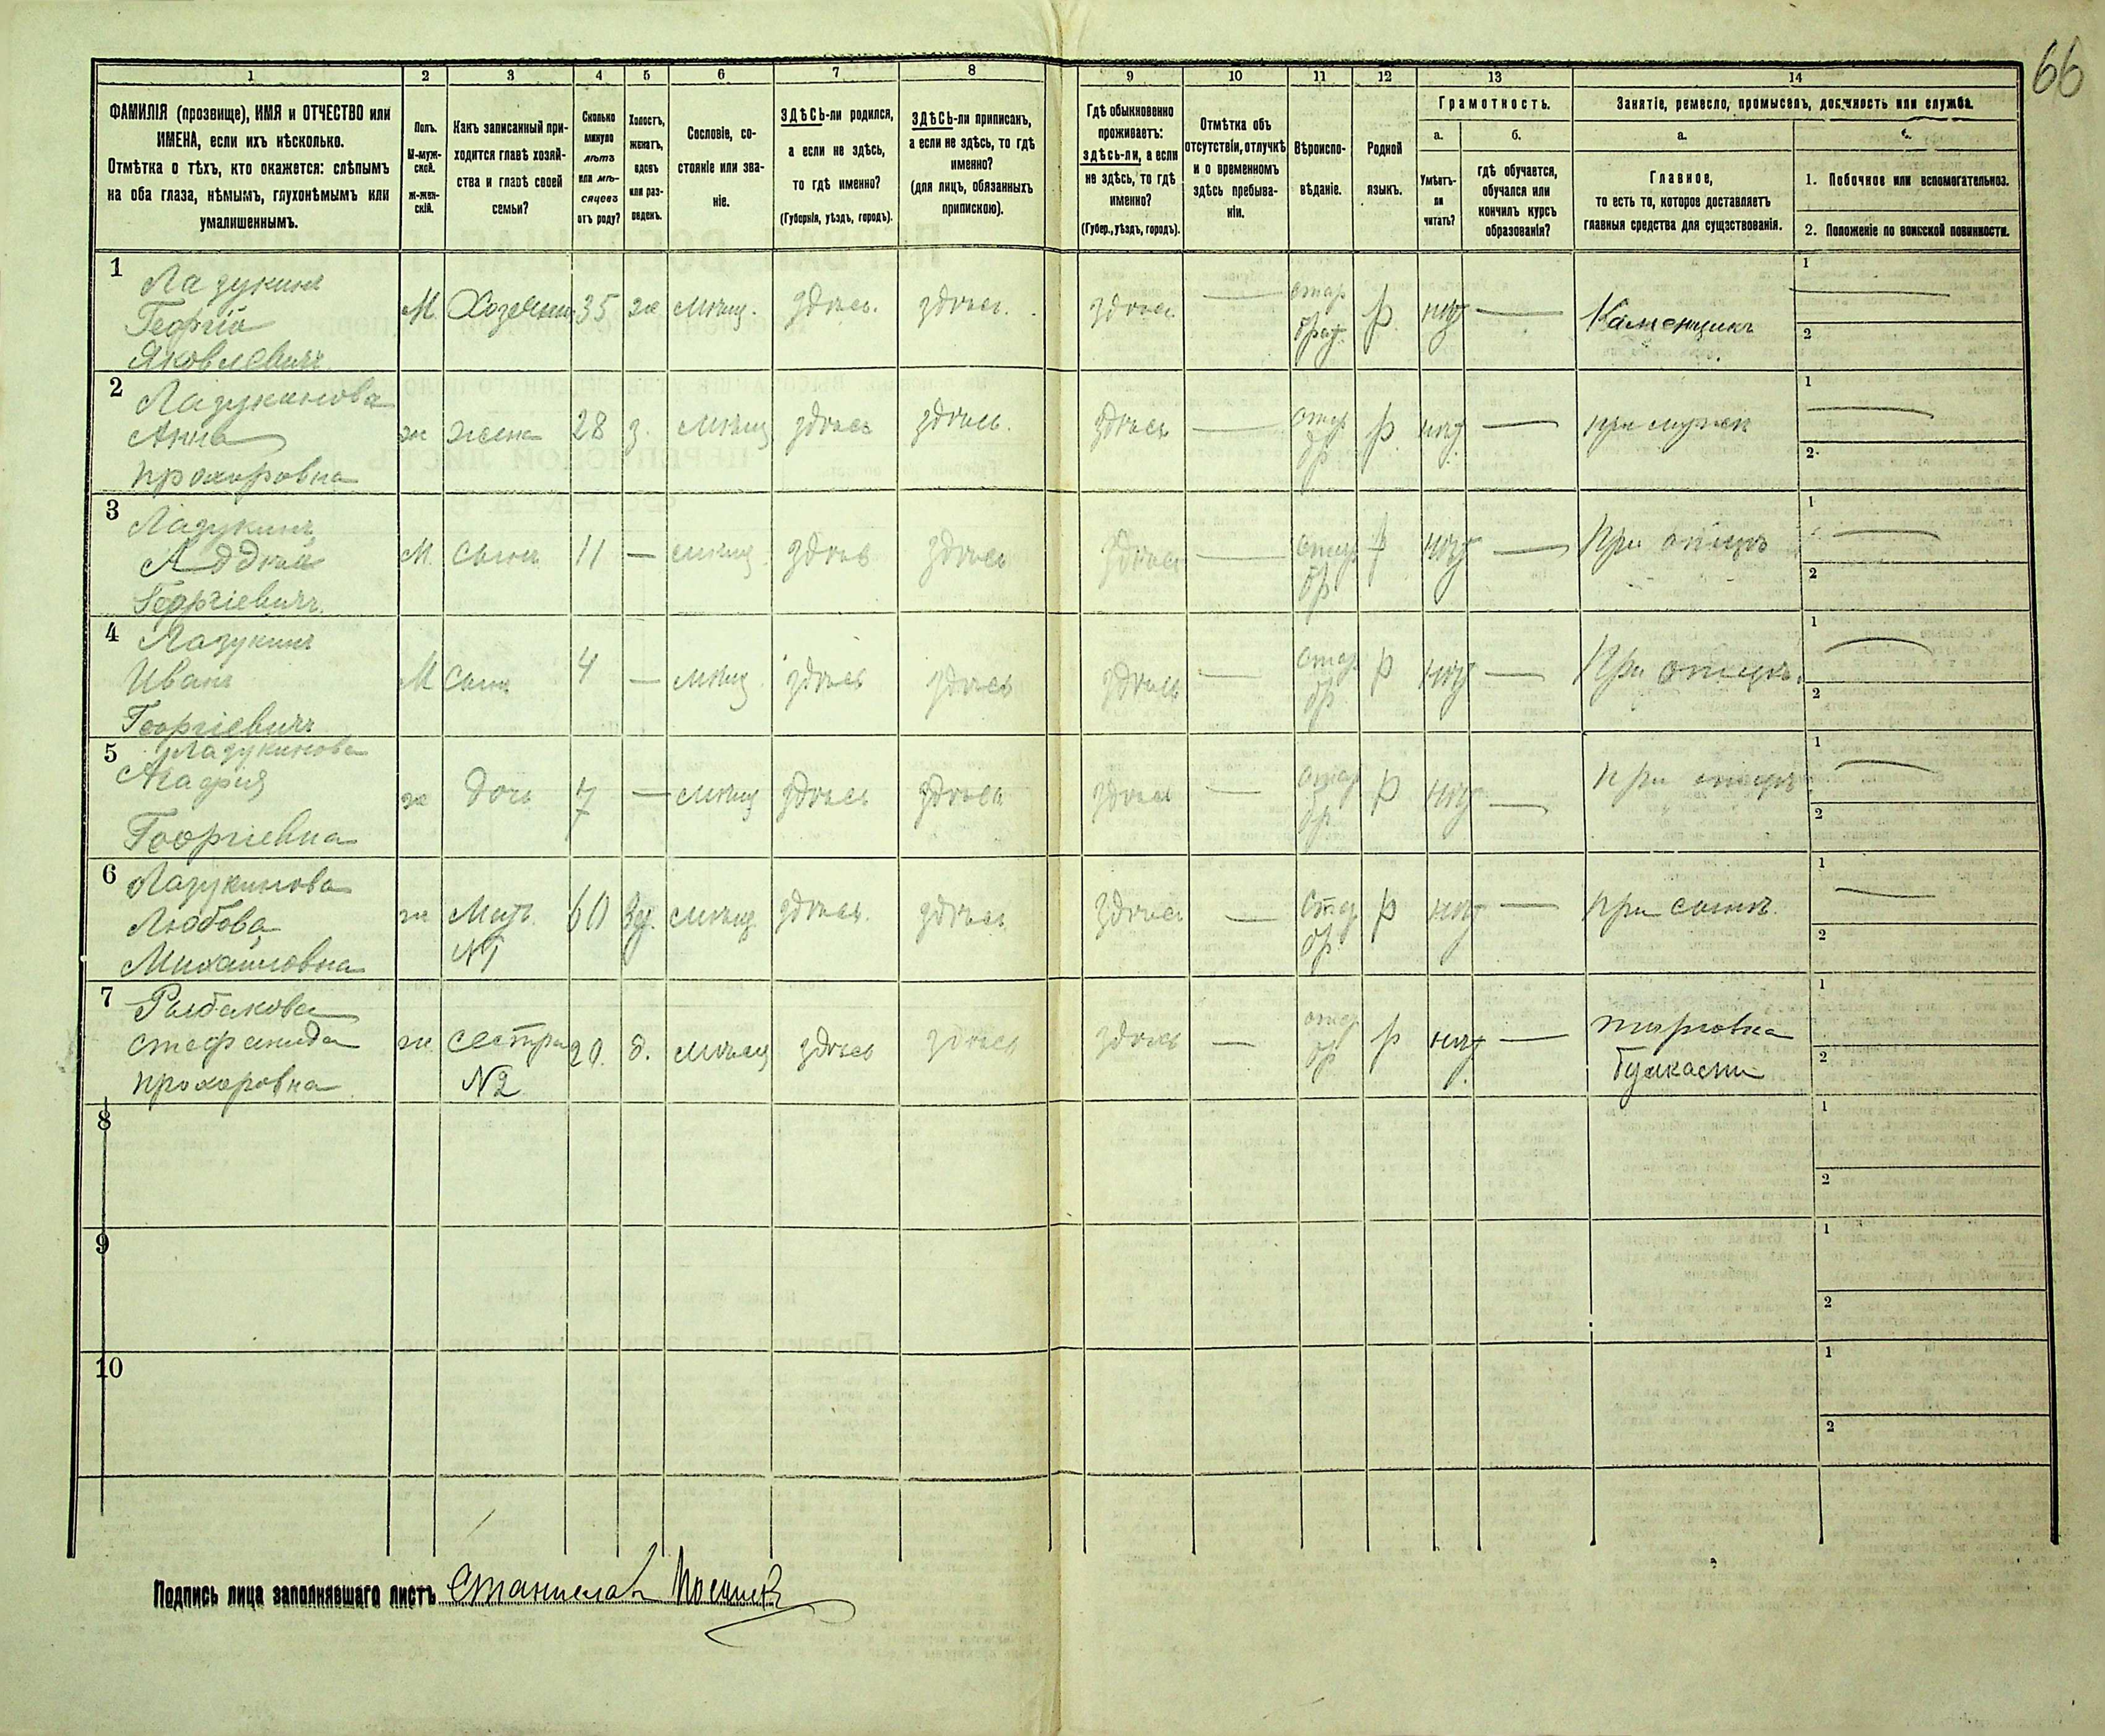 66
1 2 3 4 5 6 7 8 9 10 11 12 13 14
ФАМИЛІЯ (прозвище), ИМЯ и ОТЧЕСТВО или
ИМЕНА, если ихъ нѣсколько.
Отмѣтка о тѣхъ, кто окажется: слѣпымъ
на оба глаза, нѣмымъ, глухонѣмымъ или
умалишеннымъ.
Полъ.
М-муж-
ской.
ж-жен-
скій.
Какъ записанный при-
ходится главѣ хозяй-
ства и главѣ своей
семьи?
Сколько
минуло
лѣтъ
или мѣ-
сяцевъ
отъ роду?
Холостъ,
женатъ,
вдовъ
или раз-
веденъ.
Сословіе, со-
стояніе или зва-
ніе.
ЗДѢСЬ-ли родился,
а если не здѣсь,
то гдѣ именно?
(Губернія, уѣздъ, городъ).
ЗДѢСЬ-ли приписан,
а если не здѣсь, то гдѣ
именно?
(для лицъ, обязанныхъ
припискою).
Гдѣ обыкновенно
проживаетъ:
здѣсь-ли, а если
не здѣсь, то гдѣ
именно?
(Губер., уѣздъ, городъ).
Отмѣтка объ
отсутствіи, отлучкѣ
и о временномъ
здѣсь пребыва-
ніи.
Вѣроиспо-
вѣданіе.
Родной
языкъ.
Грамотность.
а.
Умѣетъ-
ли
читать?
б.
гдѣ обучается,
обучался или
кончилъ курсъ
образованія?
Занятіе, ремесло, промыселъ, должность или служба.
а.
Главное,
то есть то, которое доставляетъ
главныя средства для существованія.
1. Побочное или вспомогательное.
2. Положеніе по воинской повинности.
1 Лазукинъ
Георгій
Яковлевичъ
М. Хозяинъ 35 ж мѣщ. здѣсь. здѣсь. здѣсь — стар обряд. р. нѣт — Каменщикъ
1 —
2
2 Лазукинова
Анна
Прохоровна
ж жена 28 з. мѣщ здѣсь здѣсь. здѣсь — стар обр р. нѣт — при мужѣ
1 —
2
3 Лазукинъ
Георгіевичъ
М. сынъ 11 — мѣщ здѣсь здѣсь здѣсь — стар обр р нѣт — При отцѣ
1 —
2
4 Лазукинъ
Иванъ
Георгіевичъ
М сынъ 4 — мѣщ здѣсь здѣсь здѣсь — стар обр р нѣт — При отцѣ.
1 —
2
5 Лазукинова
Агафія
Георгіевна
ж дочь 7 — мѣщ здѣсь здѣсь здѣсь — стар обр р нѣт — при отцѣ
1 —
2
6 Лазукинова
Любовь
Михаиловна
ж Мать №1 60 вд. мѣщ здѣсь. здѣсь здѣсь — стар обр р нѣт — при сынѣ.
1 —
2
7 Рыбакова
Стефанида
Прохоровна
ж сестра №2 20. д. мѣщ здѣсь здѣсь здѣсь — стар обр р нѣт — торговка
булками
1
2
8
1
2
9
1
2
10
1
2
Подпись лица заполнявшаго листъ Станислав